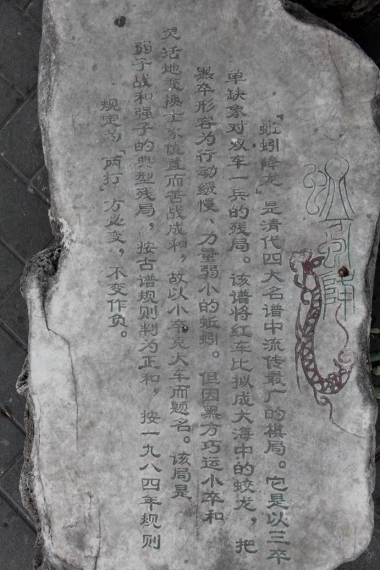 蚯蚓降
“蚯蚓降龙”是清代四大名谱中流传最广的棋局。它是以三卒
单缺象对双车一兵的残局。该谱将红车比拟成大海中的蛟龙，把
黑卒形容为行动缓慢、力量弱小的蚯蚓。但因黑方巧运小卒和
灵活地变换士象位置而苦战成和，故以小卒克大车而题名。该局是
弱子战和强子的典型残局，按古谱规则判为正和，按一九八四年规则
规定为“两打”方必变，不变作负。